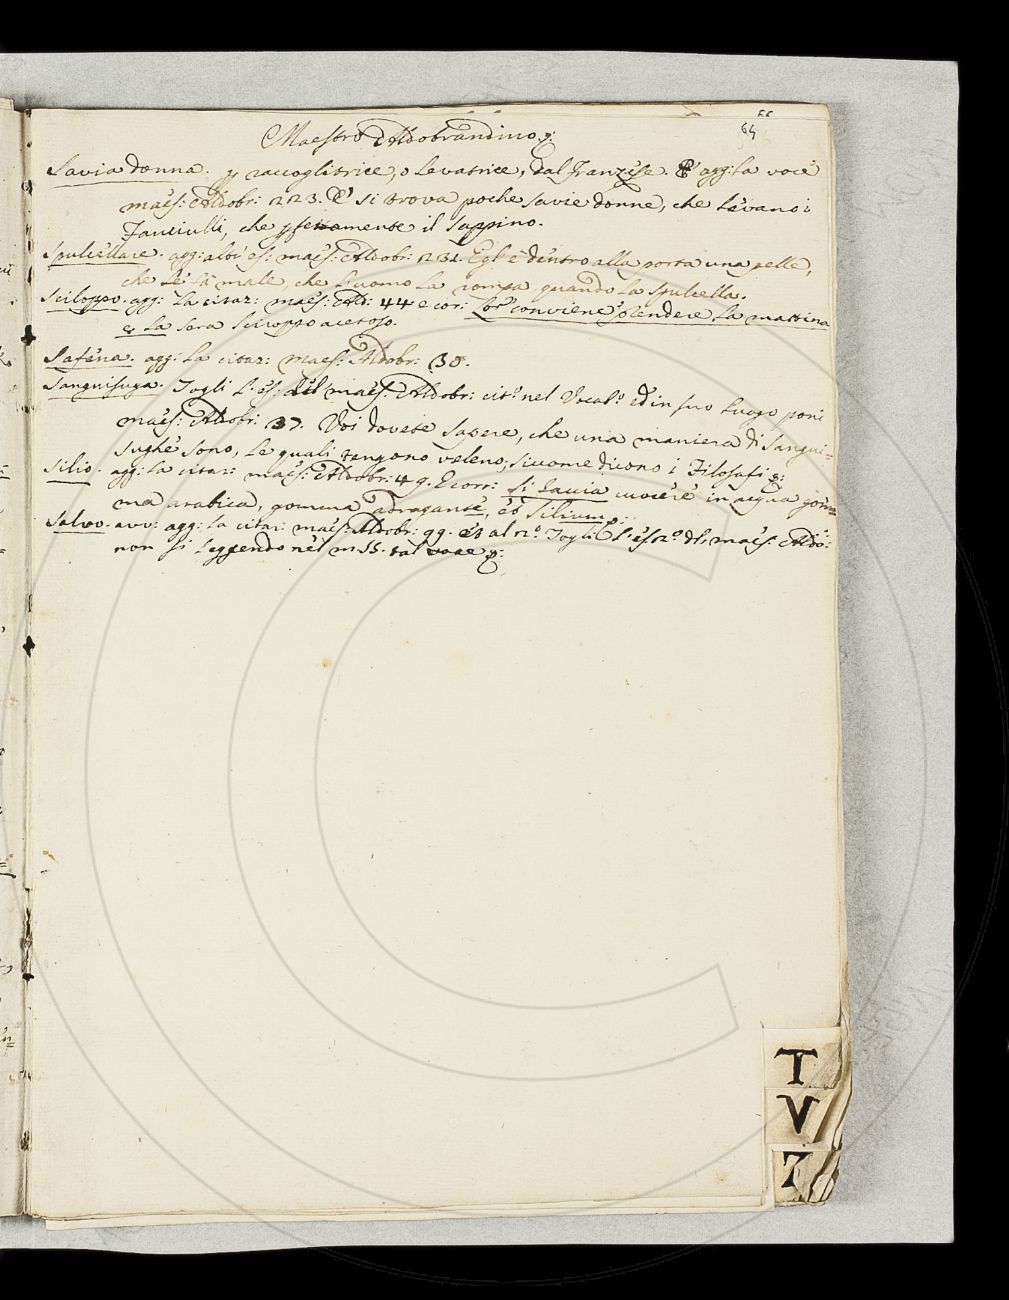 66
64
Maestro Aldobrandino
Savia donna. p raccoglitrice, o levatrice, dal franzese. E agg: la voce
maes: Aldobr: 123. E si trova poche savie donne, che levano i
fanciulli, che pfettamente il sappino.
Spulcellare. agg: es: maes: Aldobr: 132. Egl' è dentro alla porta una pelle,
che le fà male, che l'uomo la rompa quando la spulcella.
Sciloppo. agg: la citaz: maes: Ald: 44 e cor: conviene prendere la mattina
e la sera sciroppo acetoso.
Safena. agg: la citaz: maes: Aldobr: 30.
Sanguisuga. Togli l'es: del maes: Aldobr: cit.º nel Vocab.º ed in suo luogo poni
maes: Aldobr: 37. Voi dovete sapere, che una maniera di sangui=
sughe sono, le quali tengono veleno, siccome dicono i Filosafi
Silio. agg: la citaz: maes: Aldobr: 49. E corr: si faccia cuocere in acqua gom=
ma arabica, gomma adragante, e silium
Salvo. avv: agg: la citaz: maes: Aldobr: 99. es al n.º Togli l'es maes: Aldo:
non si leggendo nel m.SS. tal voce
T
V
Z